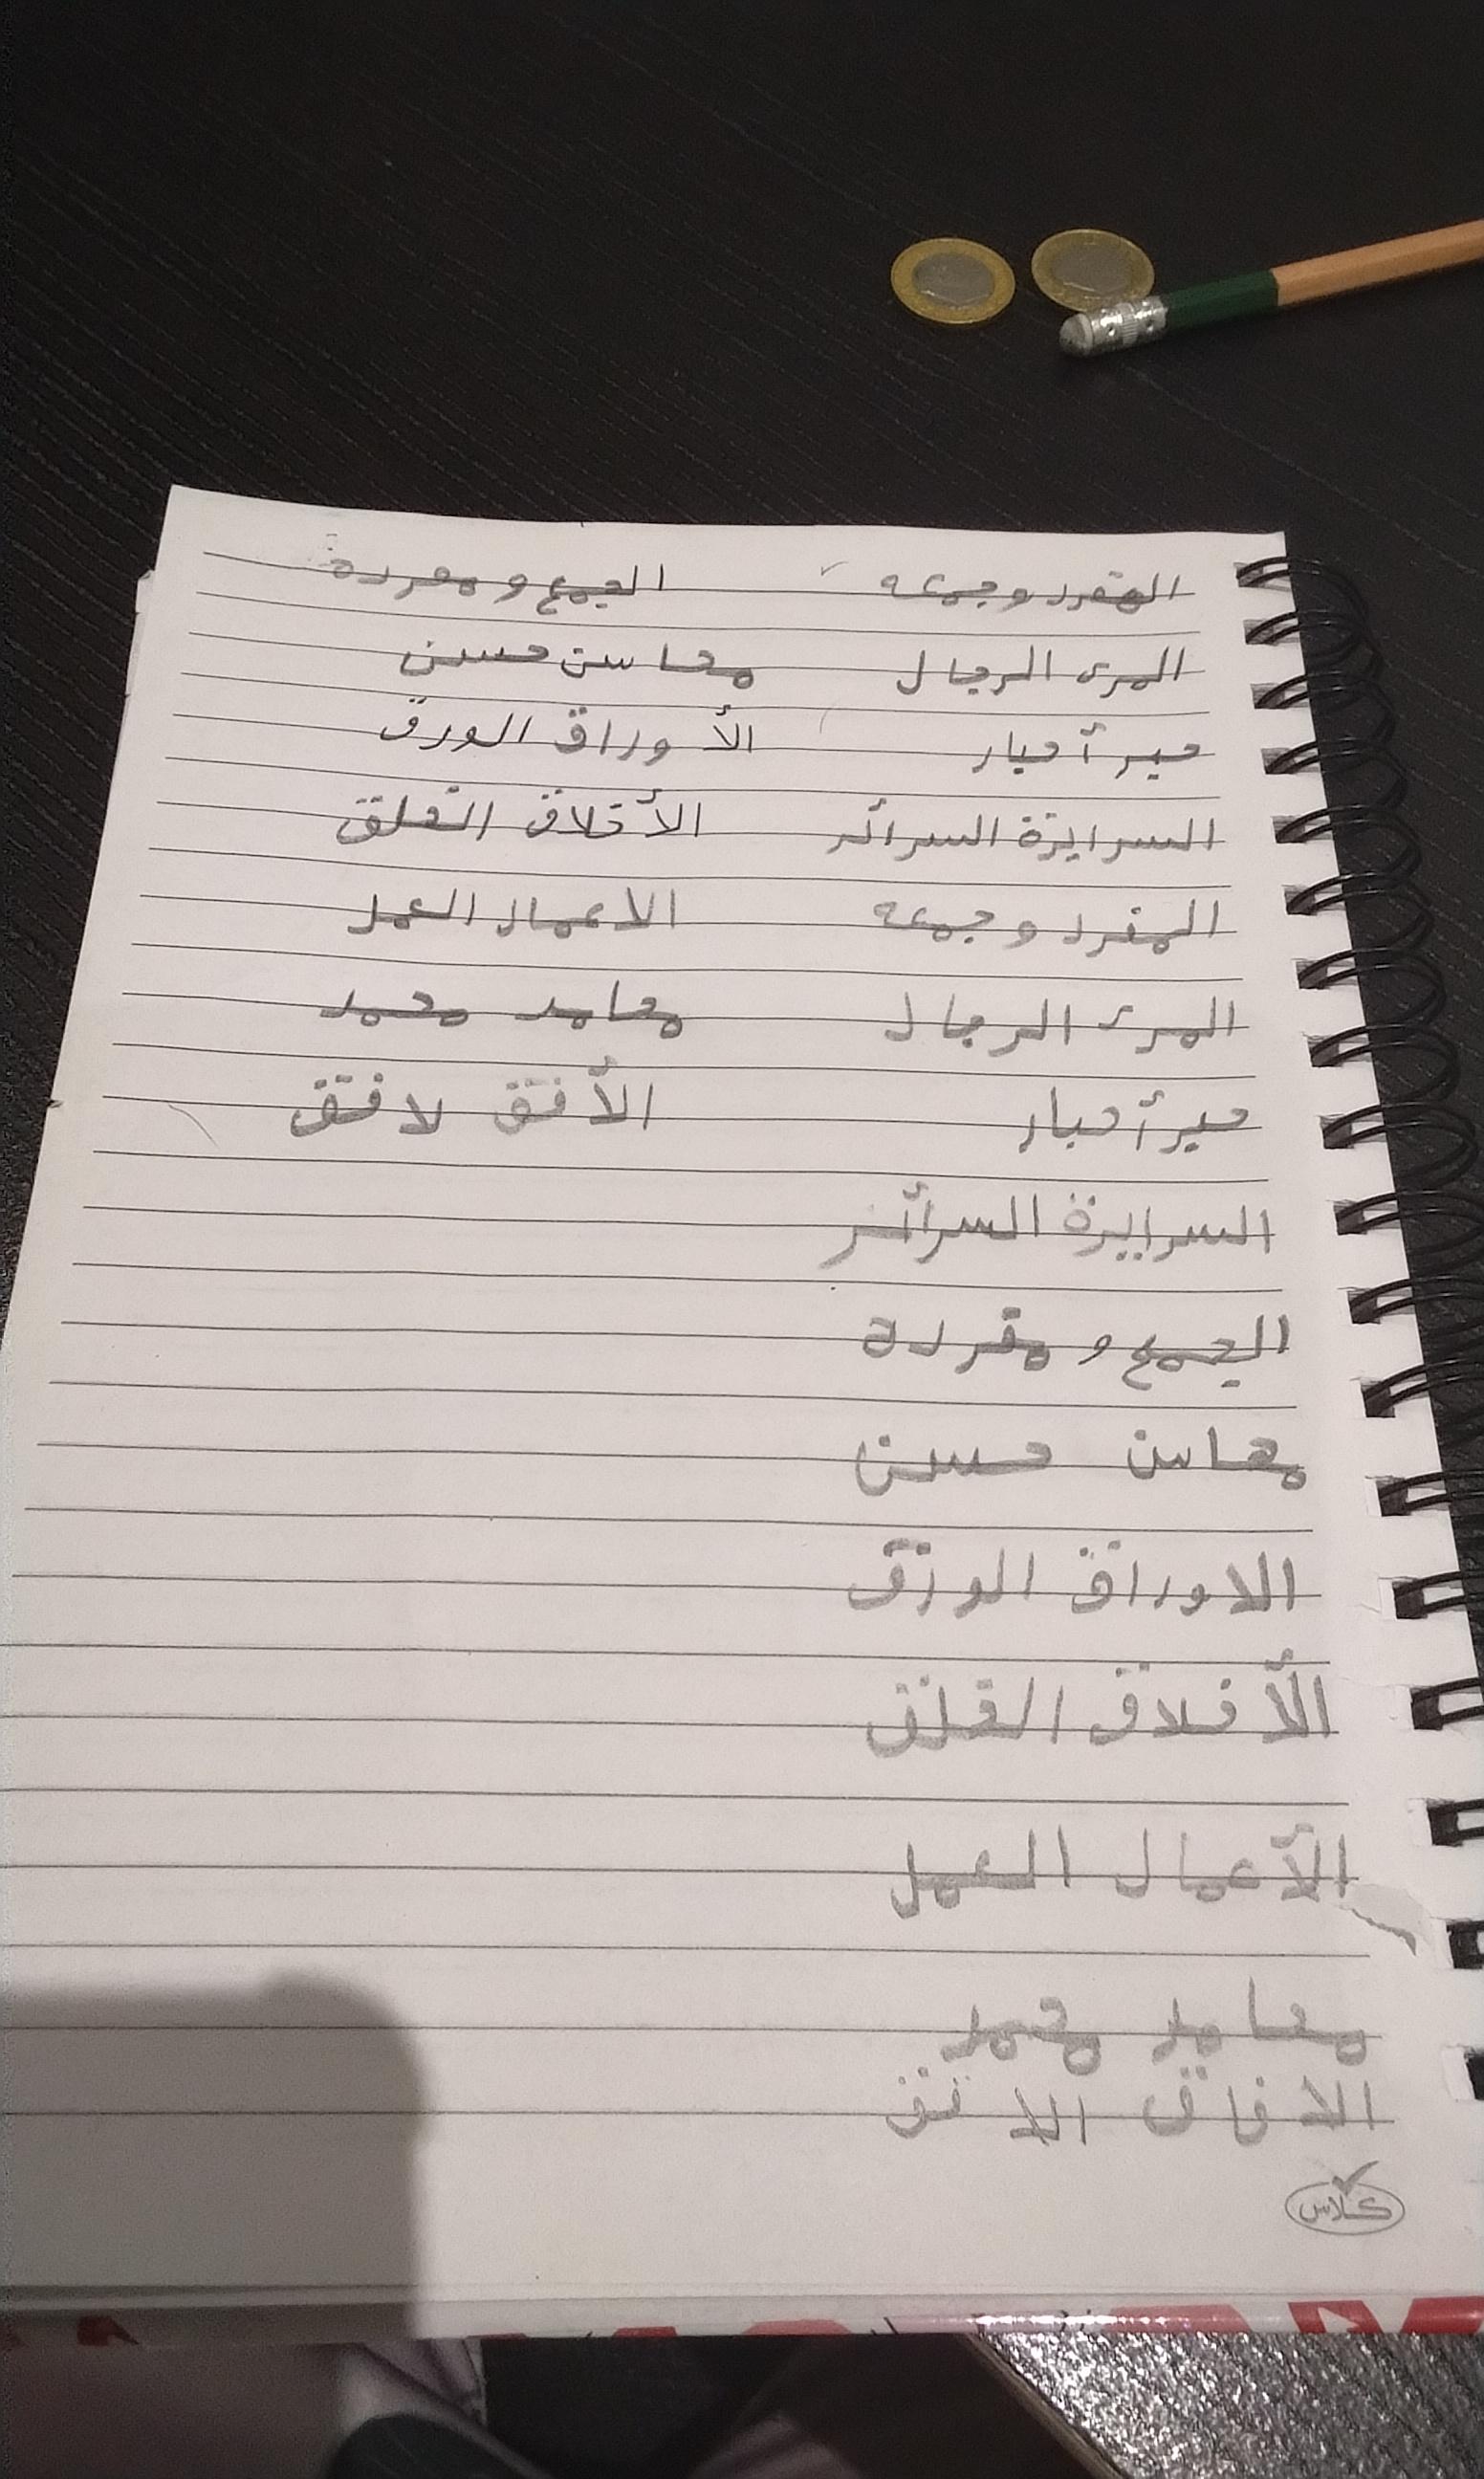 المفرد وجمعه الجمع ومفردة
المرى الرجال محاسن حسن
حبر أحبار الأوراق الورق
السرايرة السرائر الأقلاق القلق
المفرد وجمعه الاعمال العمل
المرى الرجال محامد محمد
حبر أحبار الأفق لافق
السرايرة السرائر
الجمع ومفردة
محاسن حسن
الاوراق الورق
الأقلاق القلق
الأعمال العمل
محامد محمد
الافاق الافق
كلاس